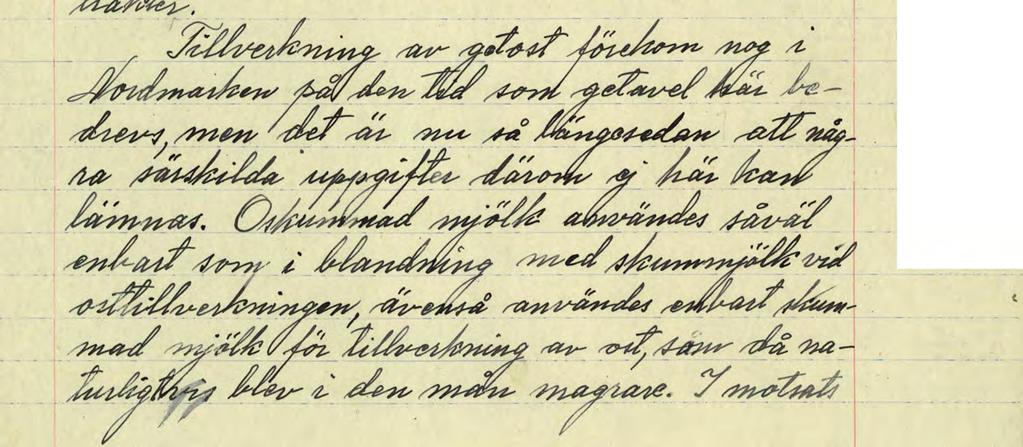 trakter.
Tillverkning av getost förekom nog i
Nordmarken på den tid som getavel här be-
drevs, men det är nu så längesedan att någ-
ra särskilda uppgifter därom ej här kan
lämnas. Oskummad mjölk användes såväl
enbart som i blandning med skummjölk vid
osttillverkningen, ävenså användes enbart skum-
mad mjölk för tillverkning av ost, som då na-
turligtvis blev i den mån magrare. I motsats